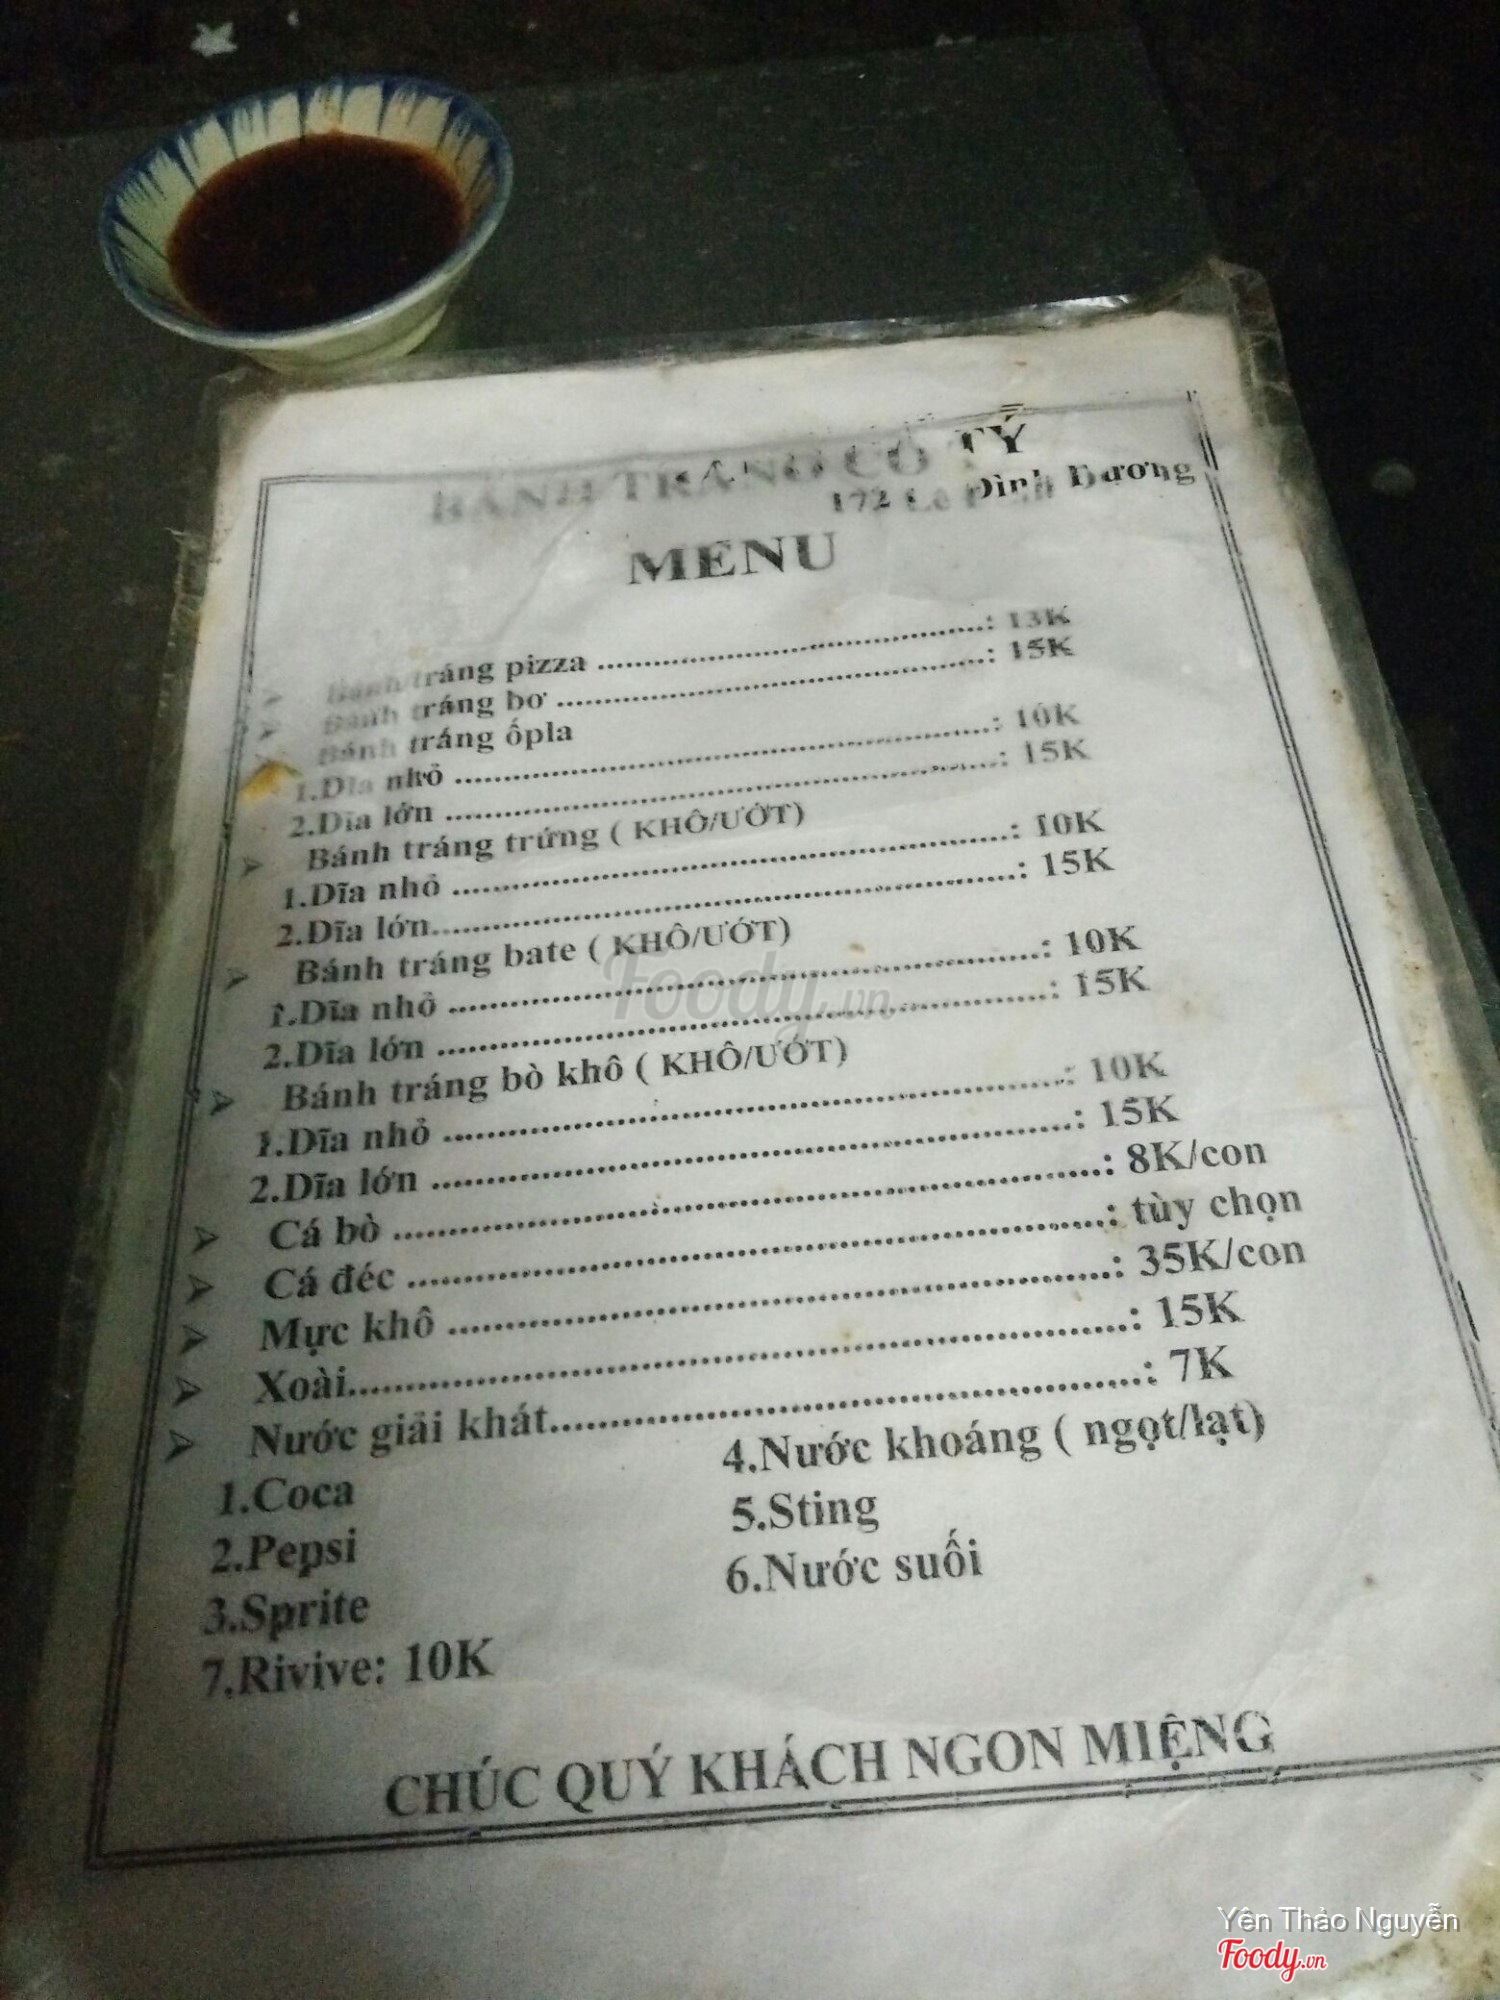 BÁNH TRÁNG CÔ TÝ
172 Lê Đình Dương
MENU
Bánh tráng pizza ........................................: 13K
Bánh tráng bơ ........................................: 15K
Bánh tráng ốpla
1.Dĩa nhỏ ........................................: 10K
2.Dĩa lớn ........................................: 15K
Bánh tráng trứng ( KHÔ/ƯỚT)
1.Dĩa nhỏ ........................................: 10K
2.Dĩa lớn........................................: 15K
Bánh tráng bate ( KHÔ/ƯỚT)
1.Dĩa nhỏ ........................................: 10K
2.Dĩa lớn ........................................: 15K
Bánh tráng bò khô ( KHÔ/ƯỚT)
1.Dĩa nhỏ ........................................: 10K
2.Dĩa lớn ........................................: 15K
Cá bò ........................................: 8K/con
Cá đéc ........................................: tùy chọn
Mực khô ........................................: 35K/con
Xoài........................................: 15K
Nước giải khát........................................: 7K
1.Coca
4.Nước khoáng ( ngọt/lạt)
2.Pepsi
5.Sting
3.Sprite
6.Nước suối
7.Rivive: 10K
CHÚC QUÝ KHÁCH NGON MIỆNG
Foody.vn
Yên Thảo Nguyễn
Foody.vn